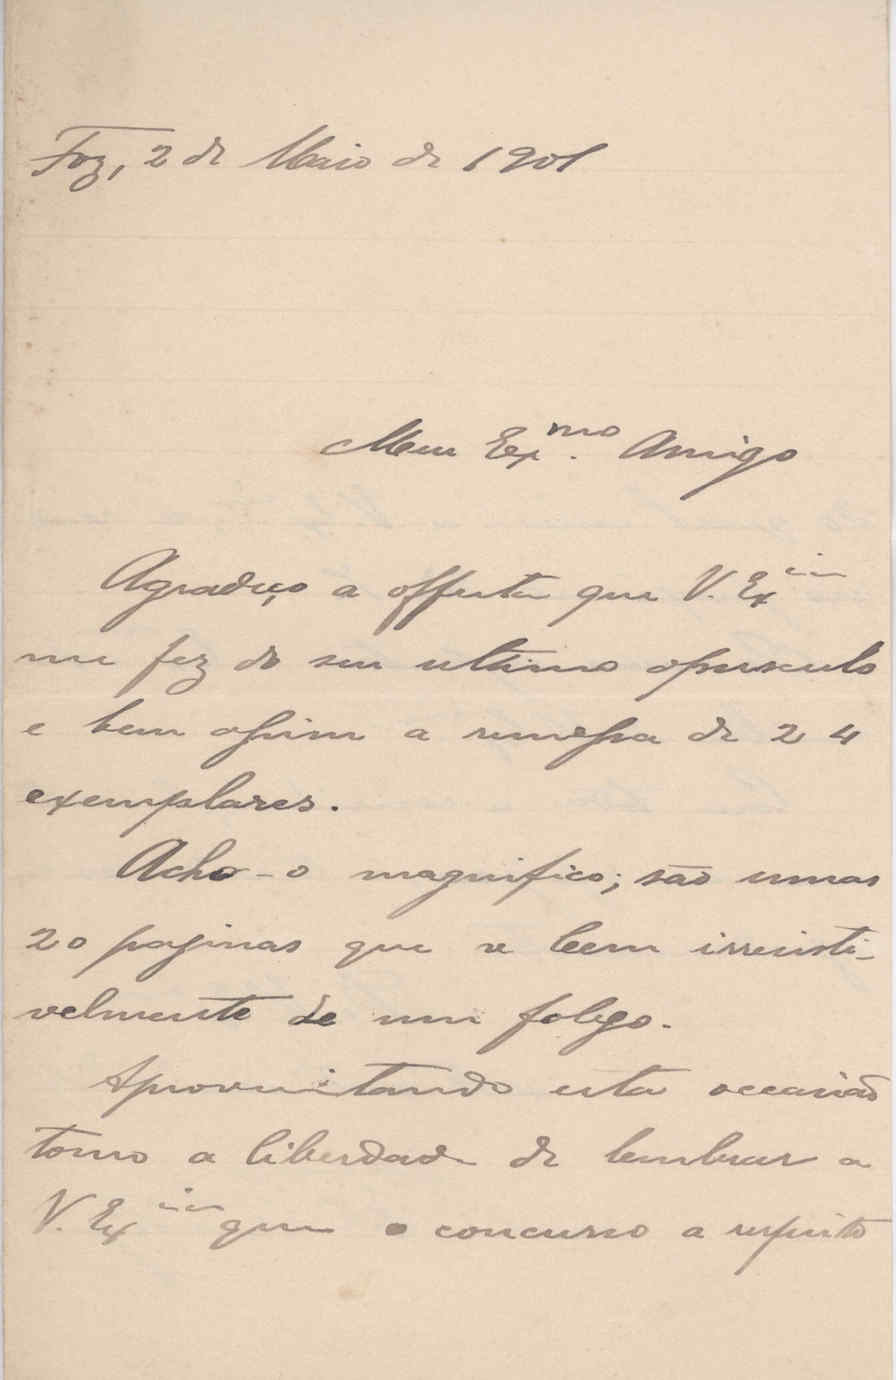 Foz, 2 de Maio de 1901
Meu Ex.mo Amigo
Agradeço a offerta que V. Exia
me fez do seu ultimo opusculo
e bem assim a remessa de 24
exemplares.
Acho-o magnifico; são umas
20 paginas que se leem irresisti-
velmente de um folego.
Aproveitando esta occasião
tomo a liberdade de lembrar a
V. Exia que o concurso a respeito